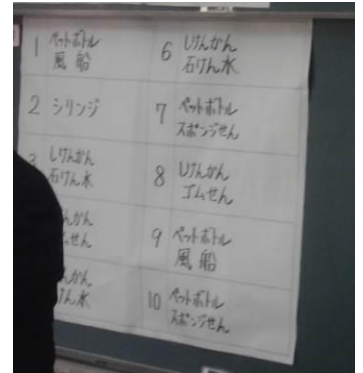 1 ペットボトル
風船
2 シリンジ
3 しけんかん
石けん水
んかん
せん
んかん
けん水
6 しけんかん
石けん水
7 ペットボトル
スポンジせん
8 しけんかん
ゴムせん
9 ペットボトル
風船
10 ペットボトル
スポンジせん